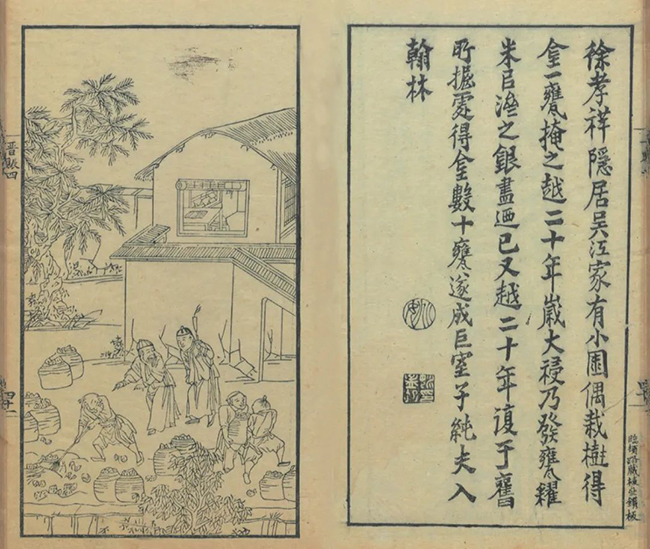 徐孝祥隱居吳江家有小圃偶栽樹得
金一甕掩之越二十年嵗大祲乃發甕糴
米㠯澹之銀盡迺已又越二十年復于舊
所掘處得金數十甕遂成巨室子純夫入
翰林